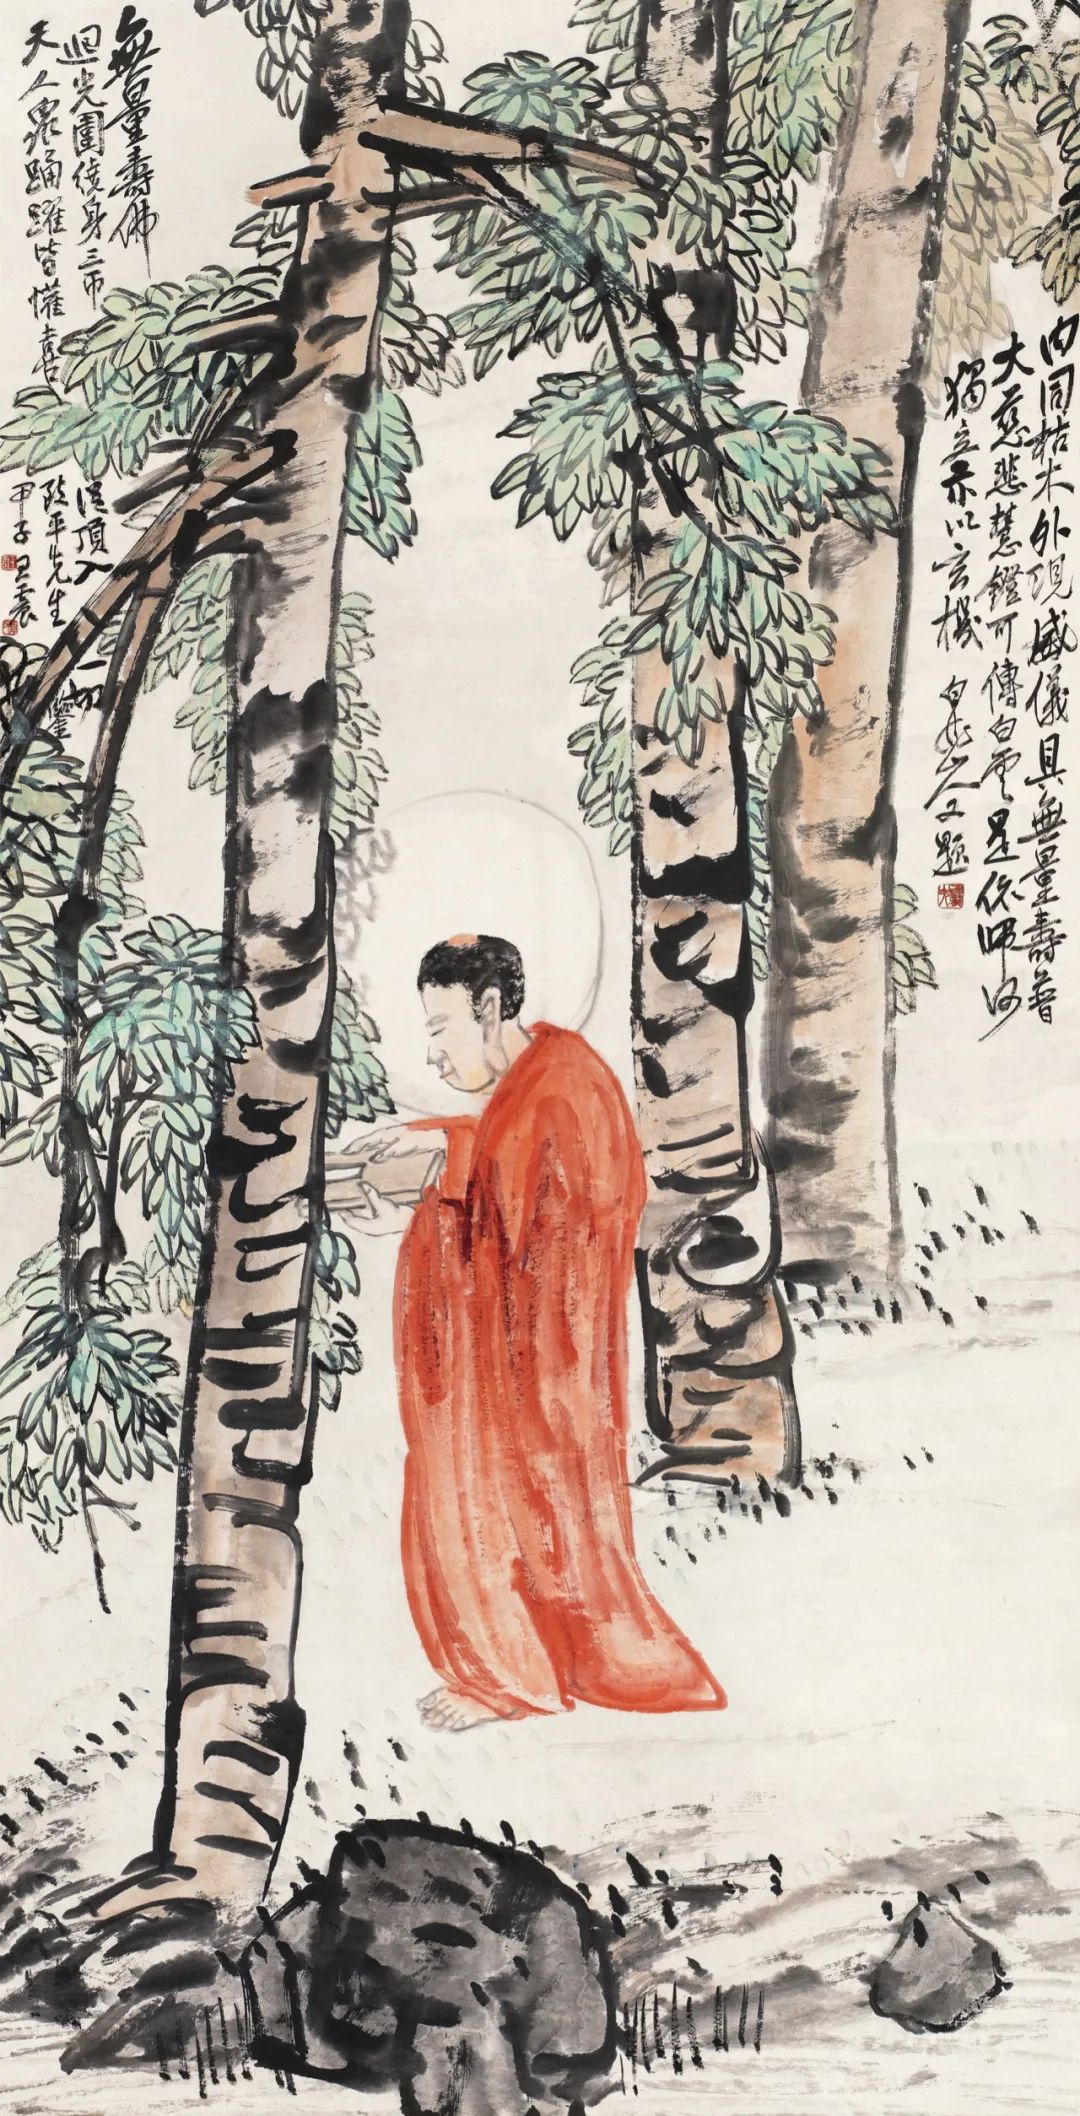 內同枯木外現威儀具無量壽普
大慈悲慧鐙可傳白雲是依師何
獨立示以玄機 白龍山人又題
無量壽佛
迴光圍繞身三帀從頂入一切
天人眾踴躍皆懽喜
平先生鑒
甲子王震